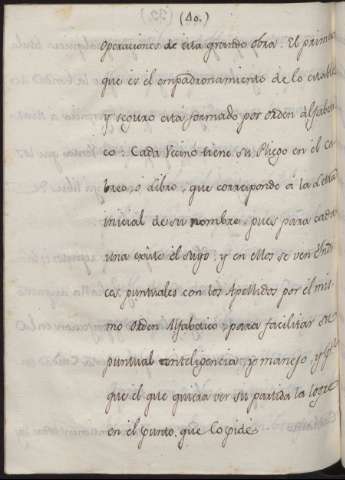 (40.)
operaciones de esta grande obra. El primero
que es el empadronamiento de lo estable
y seguro está formado por orden Alfabeti-
co: Cada Vecino tiene su Pliego en el
breo, ò Libro, que corresponde à la Letra
inicial de su nombre, pues para cada
una existe él suyo: y en ellos se ven Yndi-
ces puntuales con los Apellidos por él mis-
mo orden Alfabetico, para facilitar su
puntual inteligencia, y manejo, y
que él que quiera ver su partida la logre
en él punto, que lo pide.